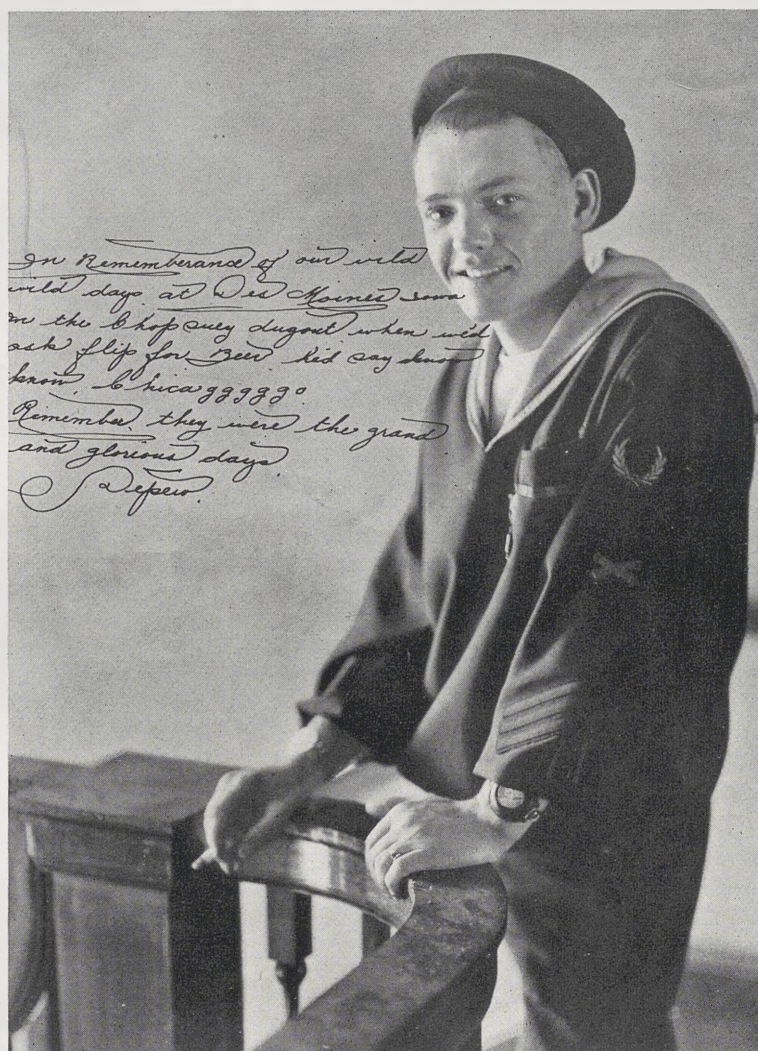 In Rememberance of our wild
wild days at Des Moines Iowa
in the Chop suey dugout when we'd
ask flip for Beer. Kid say know
know. Chicagggggo.
Remember. they were the grand
and glorious days.
Depew.